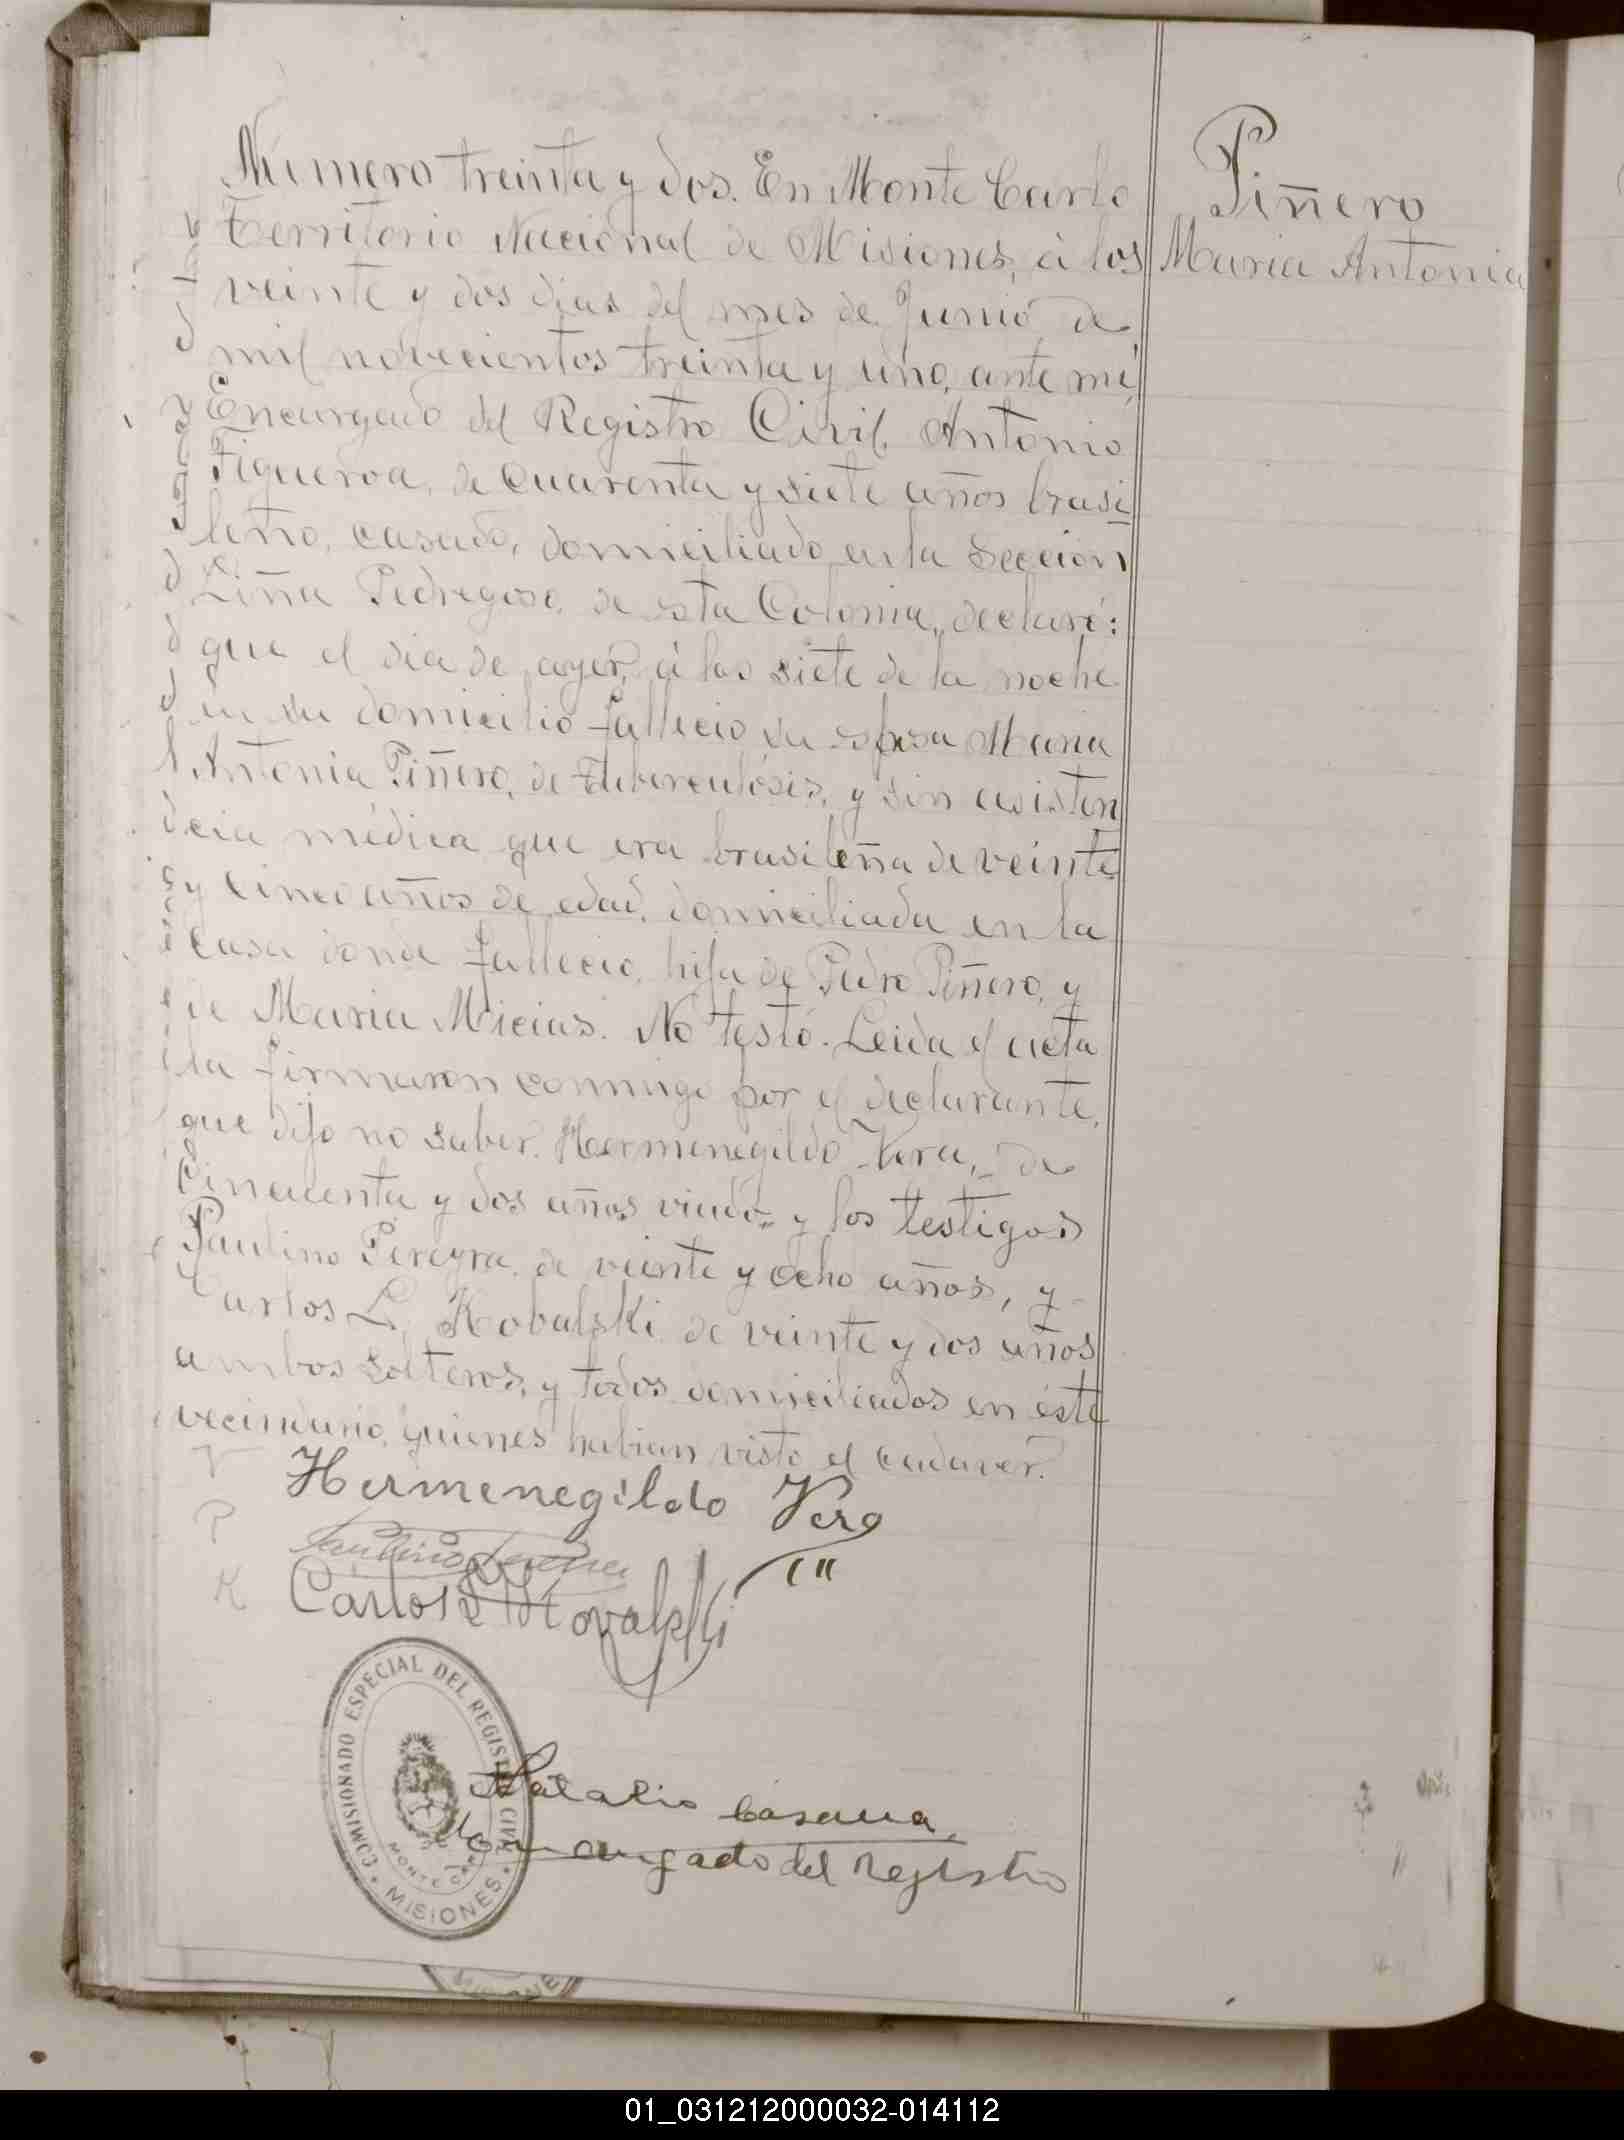 Piñero
Maria Antonia
Número treinta y dos. En Monte Carlo
Territorio Nacional de Misiones, á los
veinte y dos dias del mes de Junio de
mil novecientos treinta y uno, ante mi,
Encargado del Registro Civil, Antonio
Figueroa, de cuarenta y siete años brasi
leño, casado, domiciliado en la Sección
Liña Pedregoso, de esta Colonia, declaró:
que el dia de ayer, á las siete de la noche
en su domicilio falleció su esposa Maria
Antonia Piñero, de Tuberculósis, y sin asisten
cia médica que era brasileña de veinte
y cinco años de edad, domiciliada en la
casa donde falleció, hija de Pedro Piñero, y
de Maria Micias. No testó. Leida el acta
la firmaron conmigo por el declarante,
que dijo no saber. Hermenegildo Vera, de
cincuenta y dos años viudo, y los testigos
Paulino Pereyra, de veinte y ocho años, y
Carlos L. Kobalski de veinte y dos años
ambos solteros, y todos domiciliados en éste
vecindario, quienes habian visto el cadaver.
V
P
K
Hermenegildo Vera
Paulino Pereyra
Carlos L Kovalski
COMISIONADO ESPECIAL DEL REGISTRO CIVIL
MONTE CARLO
MISIONES
Natalio Casana
Encargado del Registro
MISIONE
01_031212000032-014112